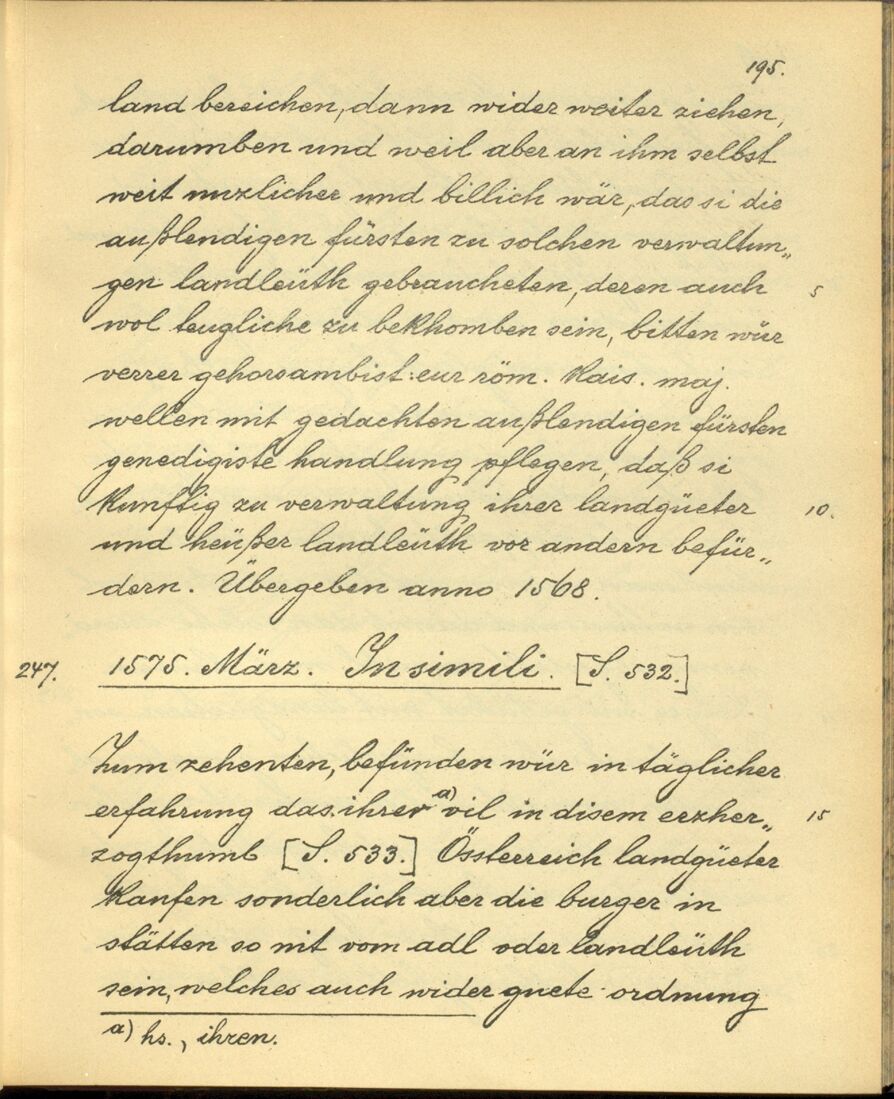 195.
land bereichen, dann wider weiter ziehen,
darumben und weil aber an ihm selbst
weit nuzlicher und billich wär, das si die
außlendigen fürsten zu solchen verwaltun„
gen landleüth gebraucheten, deren auch 5
wol teugliche zu bekhomben sein, bitten wür
verrer gehorsambist: eur röm. kais. maj.
wellen mit gedachten außlendigen fürsten
genedigiste handlung pflegen, daß si
kunftig zu verwaltung ihrer landgüeter 10.
und heüßer landleüth vor andern befür„
dern. Übergeben anno 1568.
247. 1575. März. In simili. [S. 532.]
Zum zehenten, befünden wür in täglicher
erfahrung das ihrer a) vil in disem erzher„ 15
zogthumb [S. 533.] Össterreich landgüeter
kaufen sonderlich aber die burger in
stätten so nit vom adl oder landleüth
sein, welches auch wider guete ordnung
a) hs., ihren.